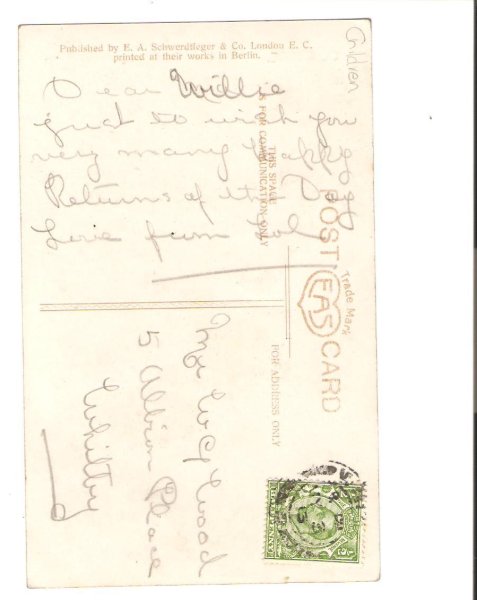 Published by E. A. Schwerdtfeger & Co. London E. C.
printed at their works in Berlin.
Children
Dear Willie
Just to wish you
very many Happy
Returns of the Day
Love from
THIS SPACE
IS FOR COMMUNICATION ONLY
POST CARD
Trade Mark
EAS
FOR ADDRESS ONLY
Wood
5 Albion Place
Whitby